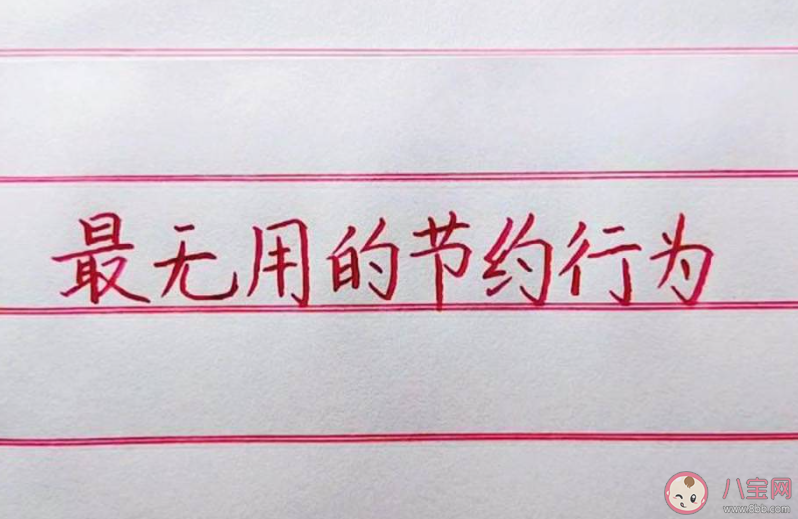 最无用的节约行为
八宝网
www.8bb.com